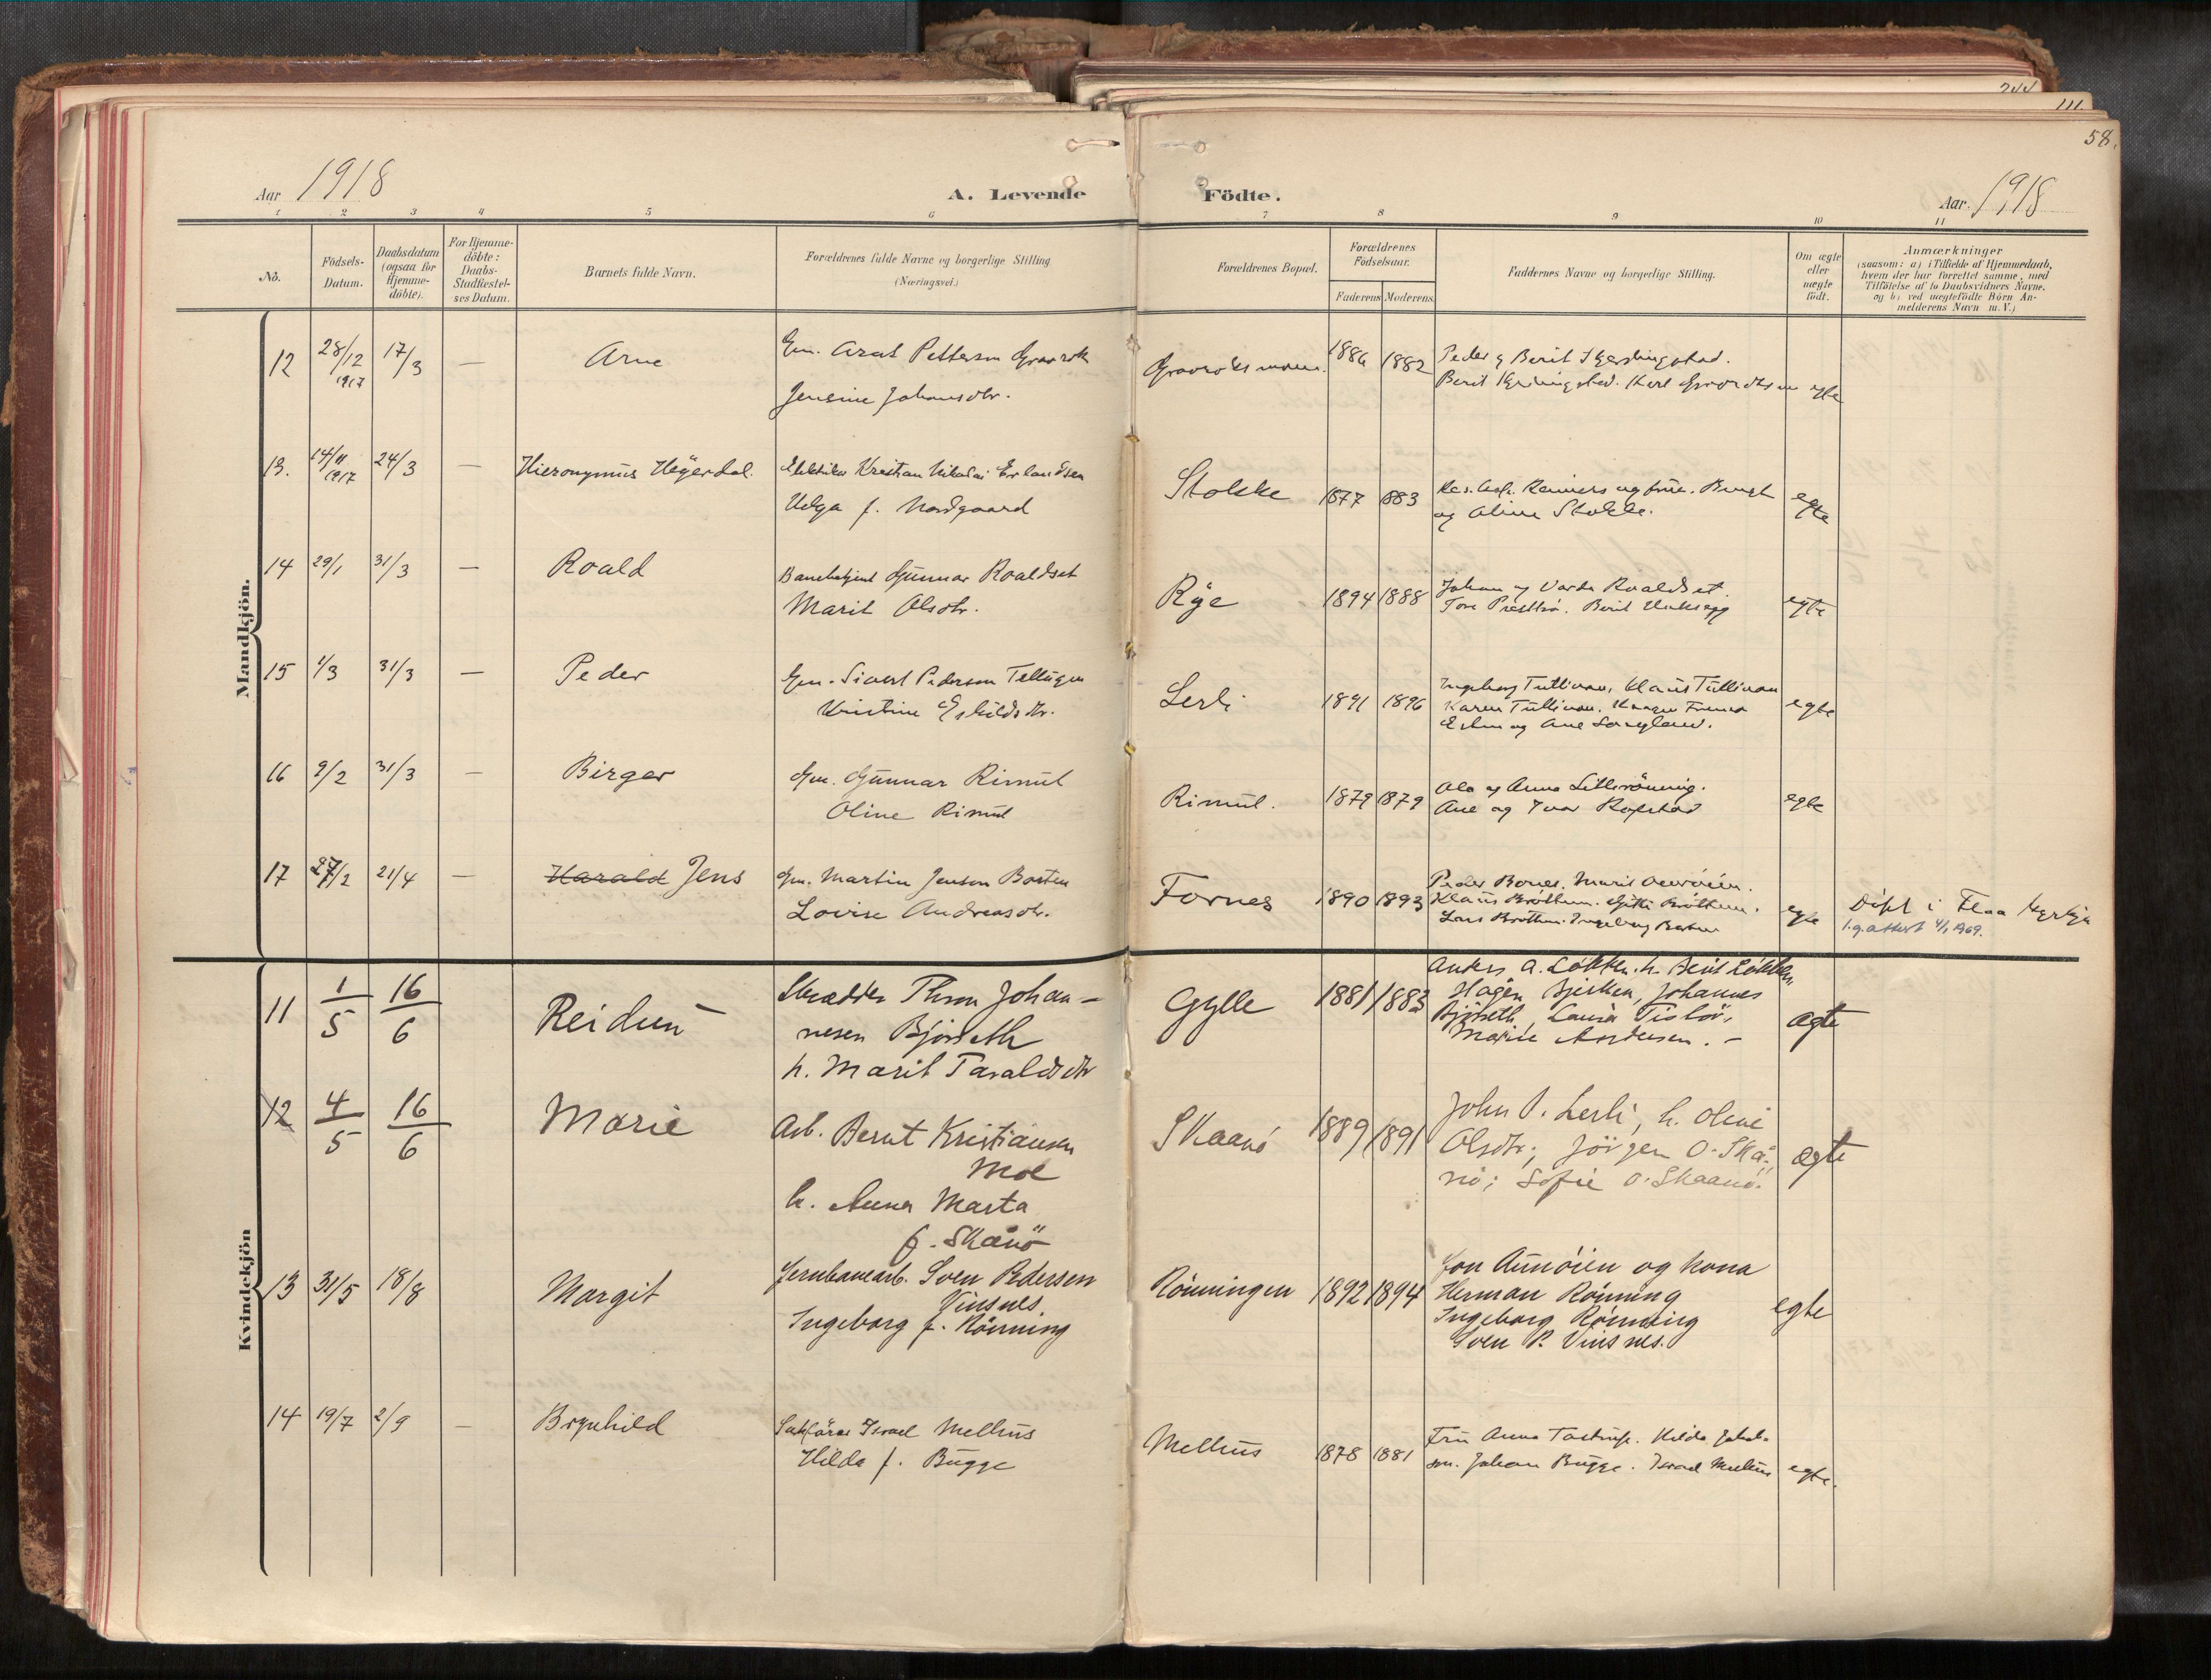 244
111.
58.
Aar 1918
A. Levende Födte.
Aar. 1918
1 2 3 4 5 6 7 8 9 10 11
No.
Födsels-
Datum.
Daabsdatum
(ogsaa for
Hjemme-
döbte).
For Hjemme-
döbte:
Daabs-
Stadfæstel-
ses Datum.
Barnets fulde Navn.
Forældrenes fulde Navne og borgerlige Stilling
(Næringsvei.)
Forældrenes Bopæl.
Forældrenes
Födselsaar.
Faderens Moderens
Faddernes Navne og borgerlige Stilling.
Om ægte
eller
uægte
födt.
Anmærkninger
(saasom: a) i Tilfælde af Hjemmedaab,
hvem der har forrettet samme, med
Tilföielse af to Daabsvidners Navne.
og b) ved uægtefödte Börn An-
melderens Navn m. V.)
Mandkjön.
12 28/12 1917 17/3 — Arne
Gm. Arnt Pettersen
Jensine Johansdtr.
1886 1882
Peder og Berit
Berit Karl egte
13. 14/11 1917 24/3 — Hieronymus Heyerdal.
Kristian Nikolai Erlandsen
Helga f. Nordgaard
Stokke 1877 1883
og frue. Bengt
og Aline Stokke.
egte
14 29/1 31/3 — Roald
Banebetjent Gunnar Roaldset
Marit Olsdtr.
Rye 1894 1888
Johan og Roaldset.
Tore Berit
egte
15 1/3 31/3 — Peder
Gm. Sivert Pedersen
Kristine Eskildsdtr.
Lerli 1891 1896
Ingeborg Klaus
Karen
og Ane
egte
16 9/2 31/3 — Birger
Gm. Gunnar Rimul
Oline Rimul
Rimul. 1879 1879
Ola og Anna Lillerönning.
Ane og Ivar
egte
17 27/2 21/4 — Harald Jens
Gm. Martin Jensen Borten
Lovise Andreasdtr.
Fornes 1890 1893
Peder Marit
Klaus Bröttem. Gitti Bröttem.
Lars Bröttem. Ingeborg Borten
egte
Döpt i Flaa kyrkje
l.g.attest 4/1 1969.
Kvindekjön
11 1/5 16/6 Reidun
Skrædder Johan-
nesen Björseth
h. Marit Taraldsdtr
Gylle 1881 1883
Anders A. Løkken, h. Berit Løkken,
Hagen Johannes
Björseth, Laura
Marie Andersen. –
ægte
12 4/5 16/6 Marie
Arb. Bernt Kristiansen
Moe
h. Anna Marta
f. Skånö
Skaanö 1889 1891
John P. Lerli, h. Oline
Olsdtr.; Jörgen O. Skå-
nö; Sofie O. Skaanö.
ægte
13 31/5 18/8 Margit
Jernbanearb. Sven Pedersen
Vinsnes.
Ingeborg f. Rönning
Rönningen 1892 1894
Jon Aunöien og kona
Herman Rönning
Ingeborg Rönning
Sven P. Vinsnes.
egte
14 19/7 2/9 — Brynhild
Sakförer Israel Melhus
Hilda f. Bugge
Melhus 1878 1881
Fru Anna Hilda
Johan Bugge. Israel Melhus
egte.